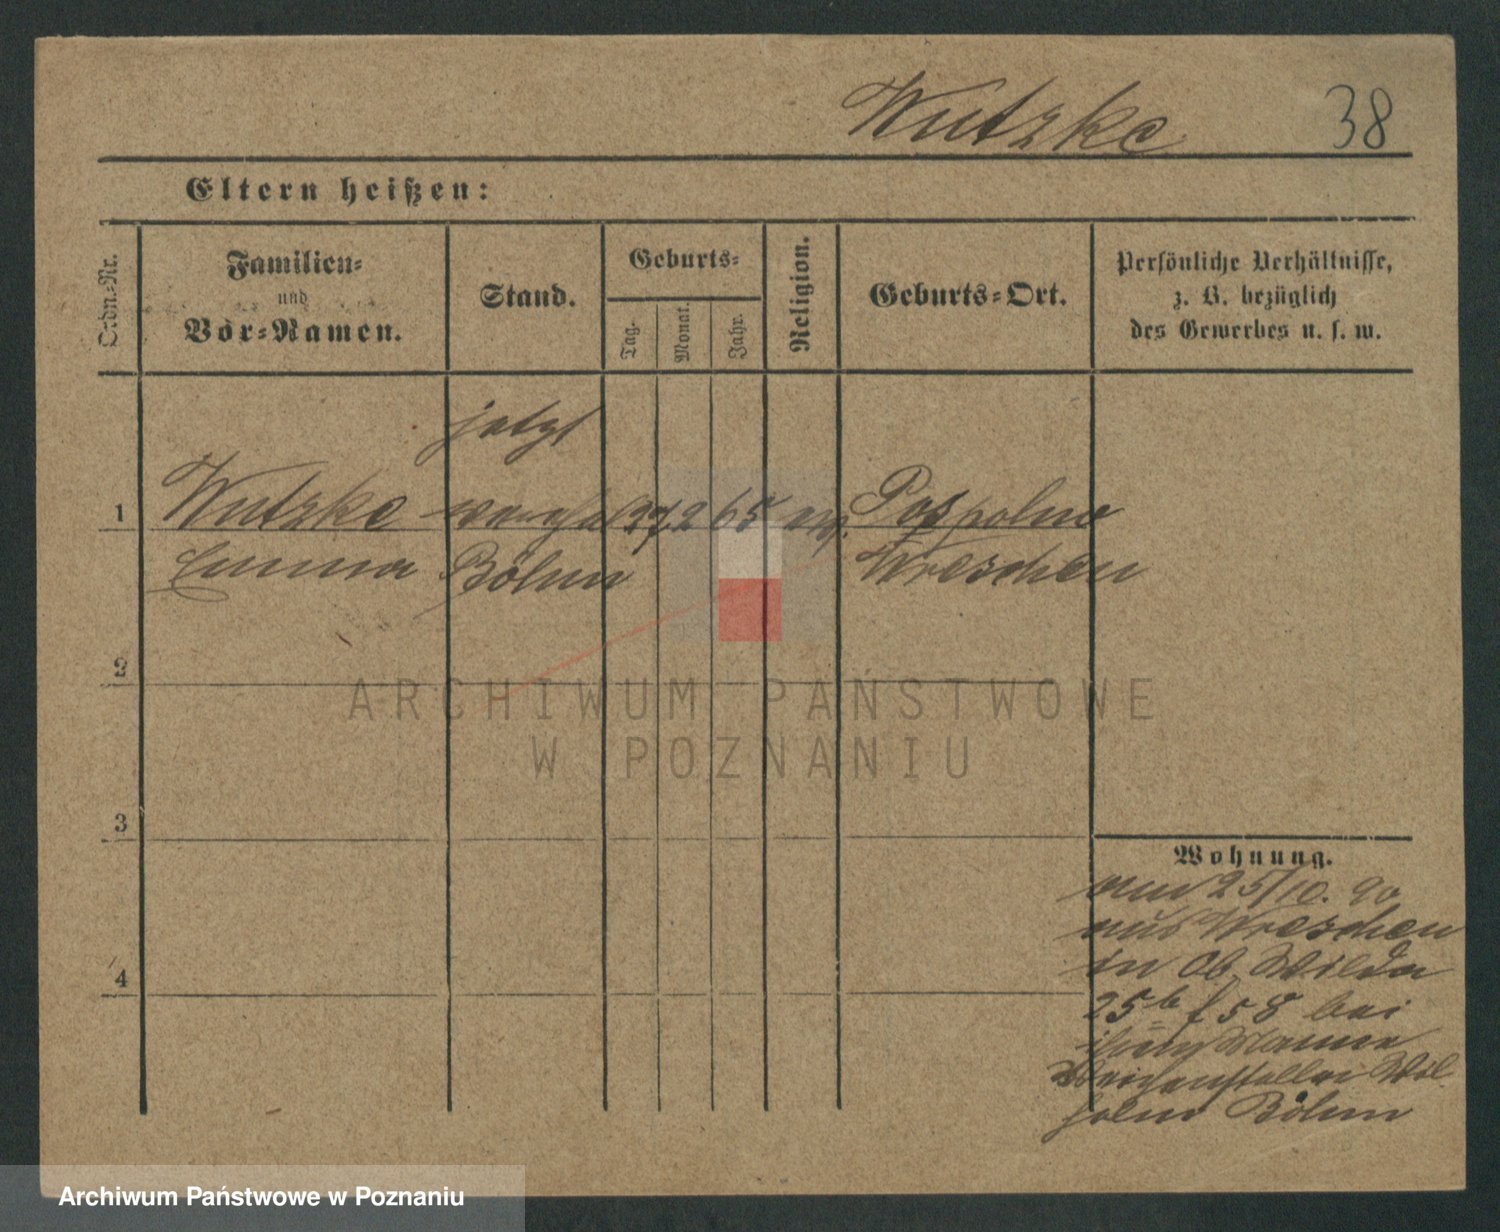 Wutzke 38
Eltern heißen:
Ordn.-Nr.
Familien-
und
Vor-Namen.
Stand.
Geburts-
Tag.
Monat.
Jahr.
Religion.
Geburts-Ort.
Persönliche Verhältnisse,
z. B. bezüglich
des Gewerbes u. s. w.
jetzt
1 Wutzke 27 2 65 ev. Pospolno
Emma Böhm Wreschen
2
3
4
Wohnung.
am 25/10. 90
aus Wreschen
in Ob. Wilda
25b f 58 bei
ihrem Manne
Weichensteller Wil-
helm Böhm
ARCHIWUM PAŃSTWOWE
W POZNANIU
Archiwum Państwowe w Poznaniu